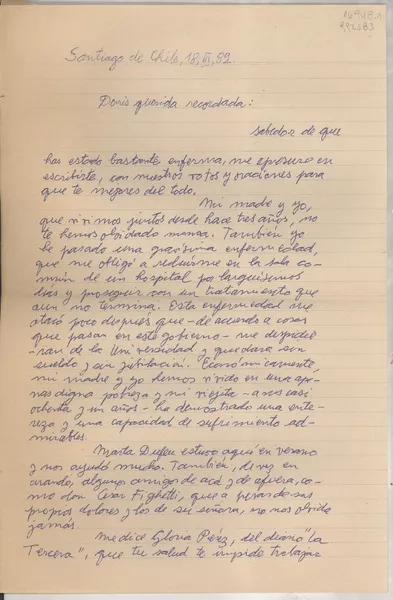 Santiago de Chile, 18, III, 82.
Doris querida recordada:
sabedor de que
has estado bastante enferma, me apresuro en
escribirte, con nuestros votos y oraciones para
que te mejores del todo.
Mi madre y yo,
que vivimos juntos desde hace tres años, no
te hemos olvidado nunca. También yo
he pasado una gravísima enfermedad,
que me obligó a recluirme en la sala co-
mún de un hospital por larguísimos
días y proseguir con un tratamiento que
aun no termina. Esta enfermedad me
atacó poco después que - de acuerdo a cosas
que pasan en este gobierno - me despidie-
ran de la Universidad y quedara sin
sueldo y sin jubilación. Económicamente,
mi madre y yo hemos vivido en una apo-
nas digna pobreza y mi viejita - a sus casi
ochenta y un años - ha demostrado una ente-
reza y una capacidad de sufrimiento ad-
mirables.
Marta estuvo aquí en verano
y nos ayudó mucho. También, de vez en
cuando, algunos amigos de acá y de afuera, co-
mo don César Fighetti, que a pesar de sus
propios dolores y los de su señora, no nos olvida
jamás.
Me dice Gloria Pérez, del diario "La
Tercera", que tu salud te impide trabajar